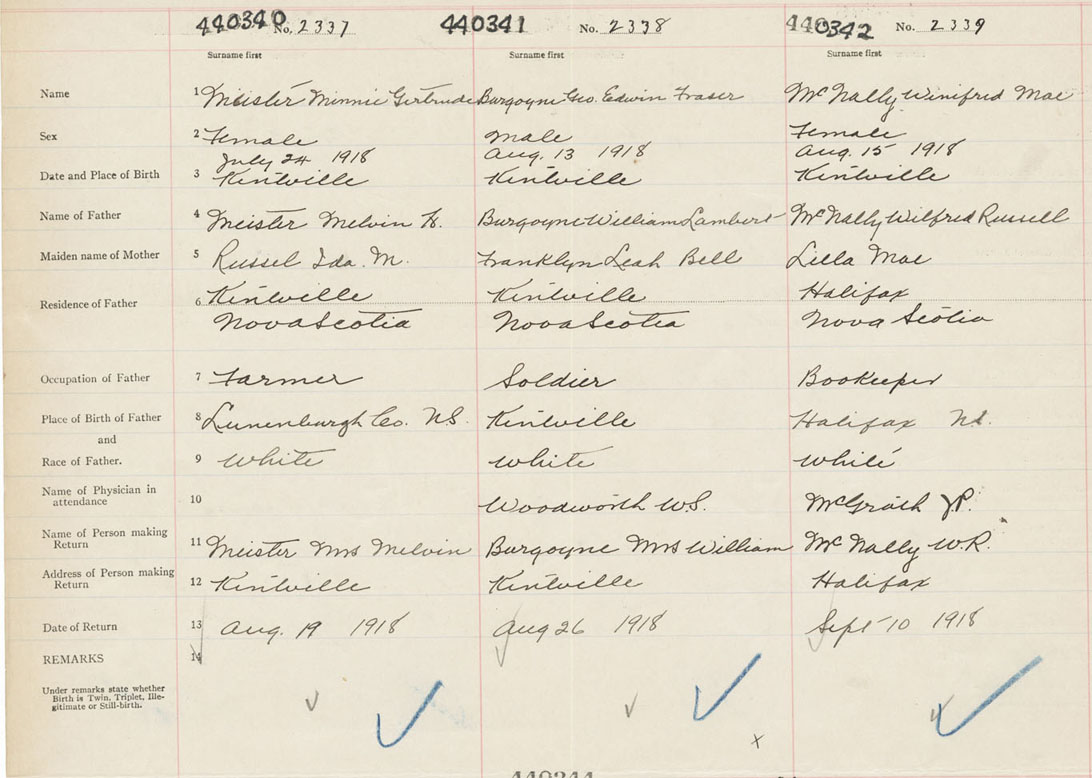 440340 No. 2337 440341 No. 2338 440342 No. 2339
Surname first Surname first Surname first
Name 1 Meister Minnie Gertrude Burgoyne Geo. Edwin Fraser McNally Winifred Mae
Sex 2 Female Male Female
July 24 1918 Aug. 13 1918 Aug. 15 1918
Date and Place of Birth 3 Kentville Kentville Kentville
Name of Father 4 Meister Melvin H. Burgoyne William Lambert McNally Wilfred Russell
Maiden name of Mother 5 Russel Ida. M. Franklyn Leah Bell Lella Mae
Residence of Father 6 Kentville Kentville Halifax
Nova Scotia Nova Scotia Nova Scotia
Occupation of Father 7 Farmer Soldier Bookeeper
Place of Birth of Father 8 Lunenburgh Co. N.S. Kentville Halifax N.S.
and
Race of Father. 9 White White White
Name of Physician in
attendance 10 Woodworth W.S. McGrath J.P.
Name of Person making
Return 11 Meister Mrs Melvin Burgoyne Mrs William McNally W.R.
Address of Person making
Return 12 Kentville Kentville Halifax
Date of Return 13 Aug. 19 1918 Aug 26 1918 Sept 10 1918
REMARKS 14
Under remarks state whether
Birth is Twin, Triplet, Ille-
gitimate or Still-birth.
x
440344